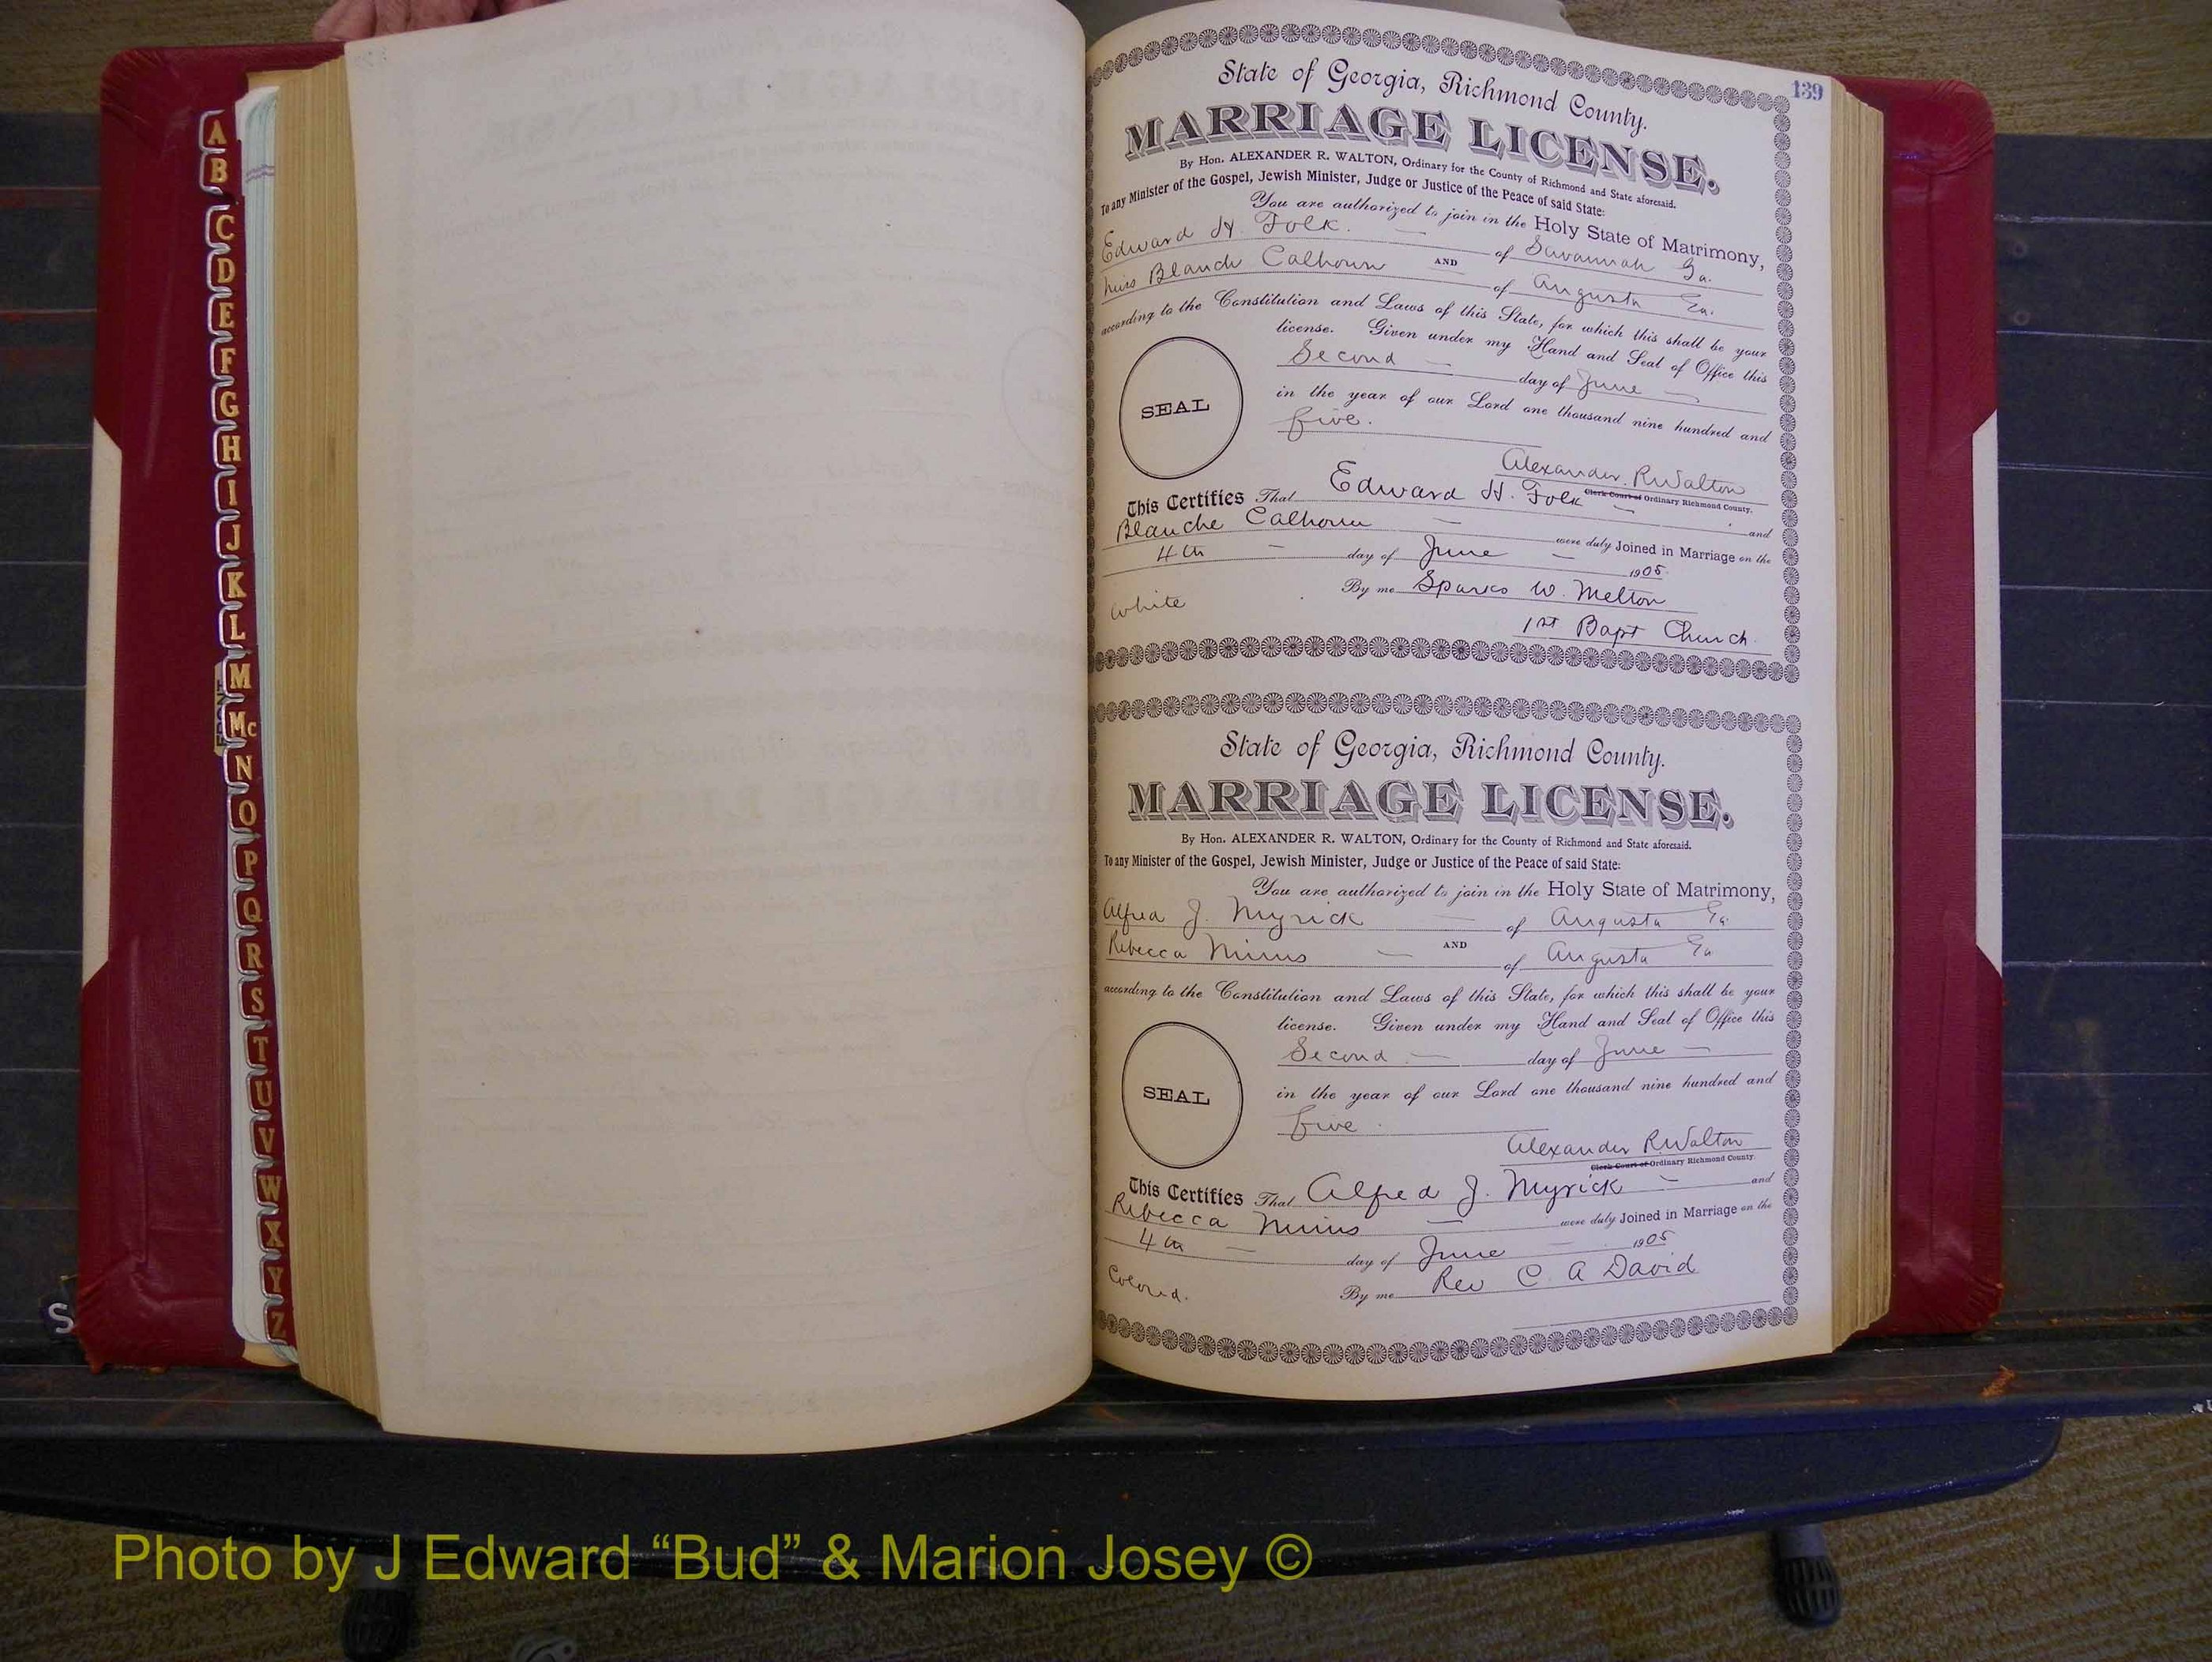 A
B
C
D
E
F
G
H
I
J
K
L
M
Mc
N
O
P
Q
R
S
T
U
V
W
X
Y
Z
139
State of Georgia, Richmond County.
MARRIAGE LICENSE.
By Hon. ALEXANDER R. WALTON, Ordinary for the County of Richmond and State aforesaid.
To any Minister of the Gospel, Jewish Minister, Judge or Justice of the Peace of said State:
You are authorized to join in the Holy State of Matrimony,
Edward H. Folk. of Savannah Ga.
AND
Miss Blanch Calhoun of Augusta Ga.
according to the Constitution and Laws of this State, for which this shall be your
license. Given under my Hand and Seal of Office this
Second day of June
in the year of our Lord one thousand nine hundred and
five.
SEAL
Alexander R Walton
Clerk Court of Ordinary Richmond County.
This Certifies That Edward H. Folk and
Blanche Calhoun were duly Joined in Marriage on the
4th day of June 1905
By me Sparks W. Melton
White
1st Bapt Church
State of Georgia, Richmond County.
MARRIAGE LICENSE.
By Hon. ALEXANDER R. WALTON, Ordinary for the County of Richmond and State aforesaid.
To any Minister of the Gospel, Jewish Minister, Judge or Justice of the Peace of said State:
You are authorized to join in the Holy State of Matrimony,
Alfred J. Myrick of Augusta Ga
AND
Rebecca Mims of Augusta Ga
according to the Constitution and Laws of this State, for which this shall be your
license. Given under my Hand and Seal of Office this
Second day of June
in the year of our Lord one thousand nine hundred and
five.
SEAL
Alexander R Walton
Clerk Court of Ordinary Richmond County.
This Certifies That Alfred J. Myrick and
Rebecca Mims were duly Joined in Marriage on the
4th day of June 1905
Colored.
By me Rev C A David
Photo by J Edward “Bud” & Marion Josey ©